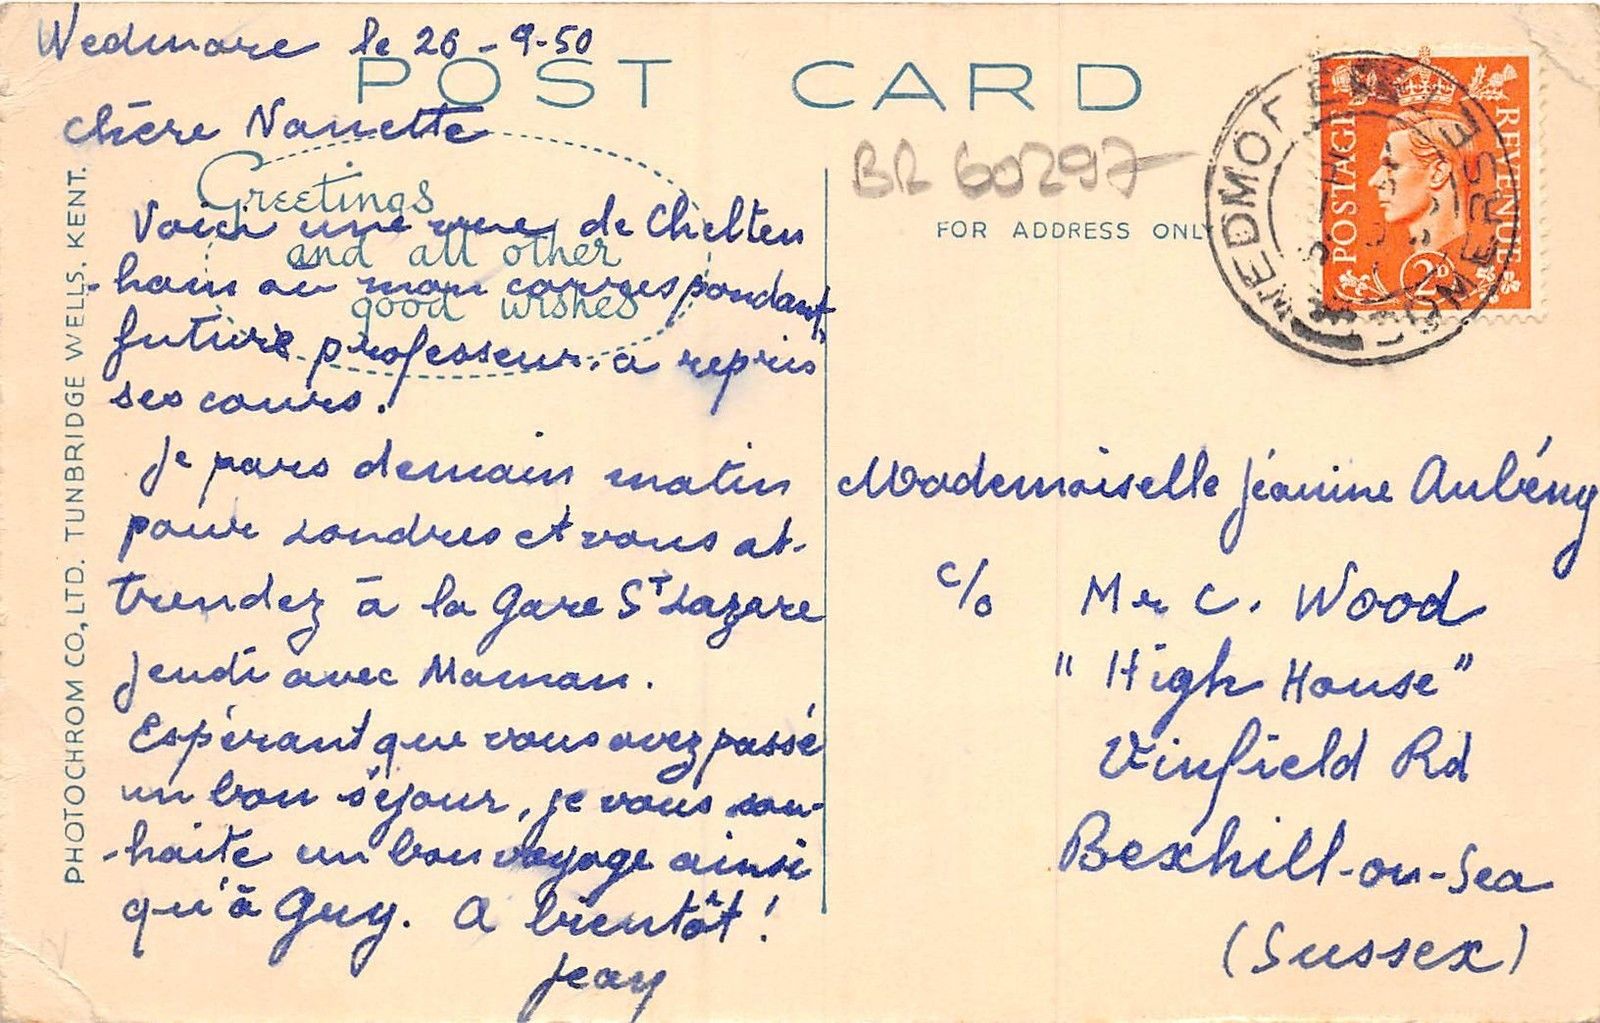 Wedmore le 26-9-50
POST CARD
Chère Nanette
Greetings
and all other
good wishes
Voici une vue de Chelten
-ham où mon correspondant,
futur professeur, a repris
ses cours.
Je pars demain matin
pour Londres et vous at-
tendez à la Gare St Lazare
jeudi avec Maman.
Espérant que vous avez passé
un bon séjour, je vous sou-
-haite un bon voyage ainsi
qu'à Guy. A bientôt!
Jean
PHOTOCHROM CO., LTD. TUNBRIDGE WELLS, KENT.
BR 60297
FOR ADDRESS ONLY
POSTAGE REVENUE
2D
WEDMORE
SOMERSET
Mademoiselle Jeanine Aubény
c/o Mr C. Wood
"High House"
Vinfield Rd
Bexhill-on-Sea
(Sussex)